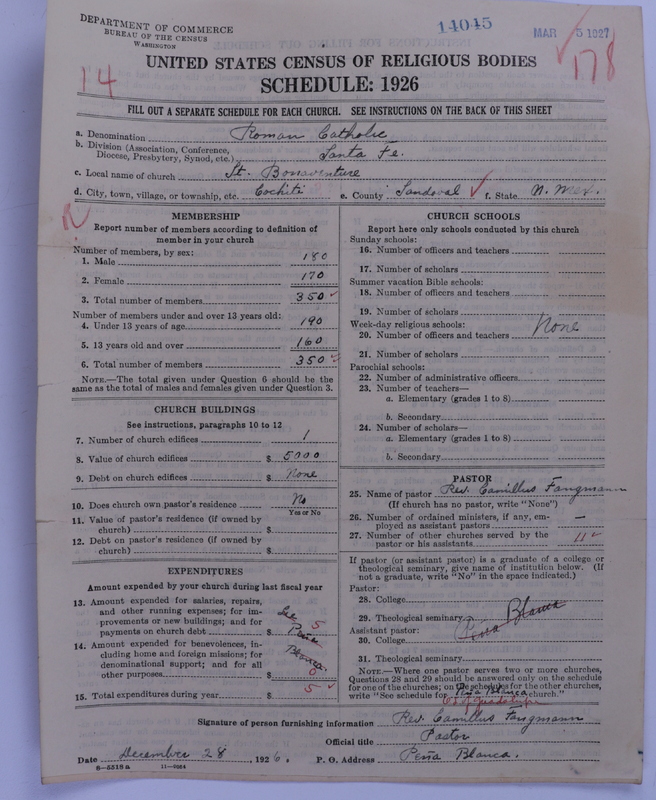 DEPARTMENT OF COMMERCE
BUREAU OF THE CENSUS
WASHINGTON
14045
MAR 5 1927
14
178
UNITED STATES CENSUS OF RELIGIOUS BODIES
SCHEDULE: 1926
FILL OUT A SEPARATE SCHEDULE FOR EACH CHURCH. SEE INSTRUCTIONS ON THE BACK OF THIS SHEET
a. Denomination Roman Catholic
b. Division (Association, Conference, Diocese, Presbytery, Synod, etc.) Santa Fe.
c. Local name of church St. Bonaventure
d. City, town, village, or township, etc. Cochiti e. County Sandoval f. State N. Mex.
MEMBERSHIP
Report number of members according to definition of
member in your church
Number of members, by sex:
1. Male 180
2. Female 170
3. Total number of members 350
Number of members under and over 13 years old:
4. Under 13 years of age 190
5. 13 years old and over 160
6. Total number of members 350
NOTE.—The total given under Question 6 should be the
same as the total of males and females given under Question 3.
CHURCH BUILDINGS
See instructions, paragraphs 10 to 12
7. Number of church edifices 1
8. Value of church edifices $ 5000
9. Debt on church edifices $ None
10. Does church own pastor's residence No
Yes or No
11. Value of pastor's residence (if owned by
church) $
12. Debt on pastor's residence (if owned by
church) $
EXPENDITURES
Amount expended by your church during last fiscal year
13. Amount expended for salaries, repairs,
and other running expenses; for im-
provements or new buildings; and for
payments on church debt $ See Peña Blanca 5
14. Amount expended for benevolences, in-
cluding home and foreign missions; for
denominational support; and for all
other purposes $ 0
15. Total expenditures during year $ 5
CHURCH SCHOOLS
Report here only schools conducted by this church
Sunday schools:
16. Number of officers and teachers
17. Number of scholars
Summer vacation Bible schools:
18. Number of officers and teachers
19. Number of scholars
Week-day religious schools: None
20. Number of officers and teachers
21. Number of scholars
Parochial schools:
22. Number of administrative officers
23. Number of teachers—
a. Elementary (grades 1 to 8)
b. Secondary
24. Number of scholars—
a. Elementary (grades 1 to 8)
b. Secondary
PASTOR
25. Name of pastor Rev. Camillus Fangmann
(If church has no pastor, write "None")
26. Number of ordained ministers, if any, em-
ployed as assistant pastors —
27. Number of other churches served by the
pastor or his assistants 11
If pastor (or assistant pastor) is a graduate of a college or
theological seminary, give name of institution below. (If
not a graduate, write "No" in the space indicated.)
Pastor:
28. College
29. Theological seminary Peña Blanca
Assistant pastor:
30. College
31. Theological seminary
NOTE.—Where one pastor serves two or more churches,
Questions 28 and 29 should be answered only on the schedule
for one of the churches; on the schedules for the other churches,
write "See schedule for Peña Blanca church."
Signature of person furnishing information Rev. Camillus Fangmann
Official title Pastor
Date December 28, 1926. P. O. Address Peña Blanca.
8—5518 a 11—9664